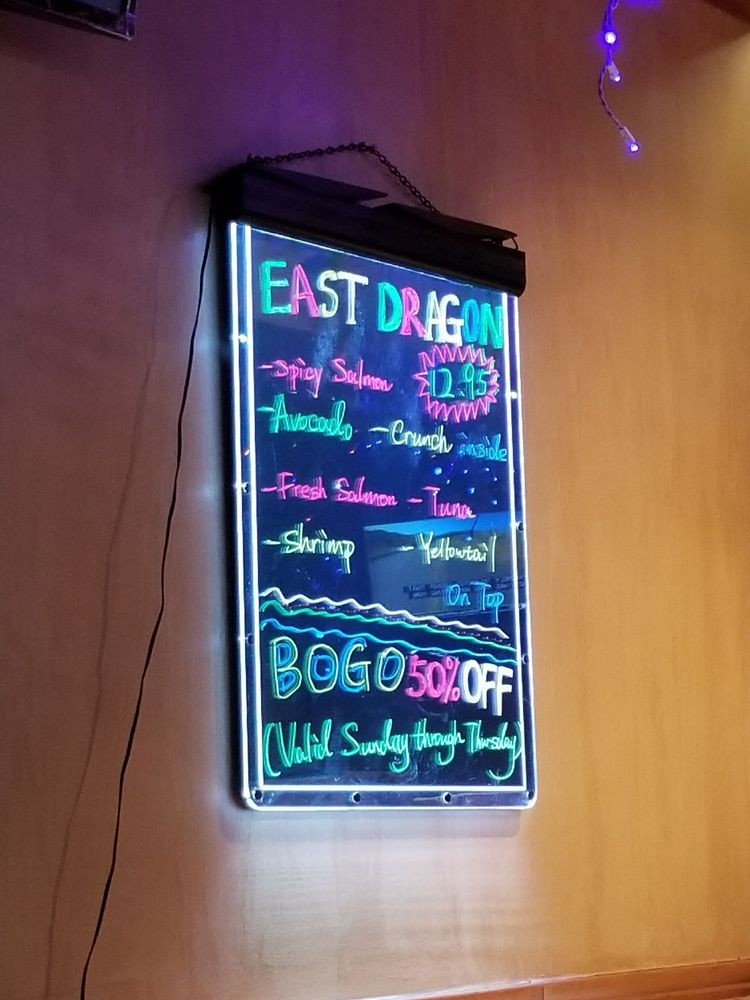 EAST DRAGON
-Spicy Salmon 12.95
-Avocado -Crunch inside
-Fresh Salmon -Tuna
-Shrimp -Yellowtail
On Top
BOGO 50% OFF
(Valid Sunday through Thursday)